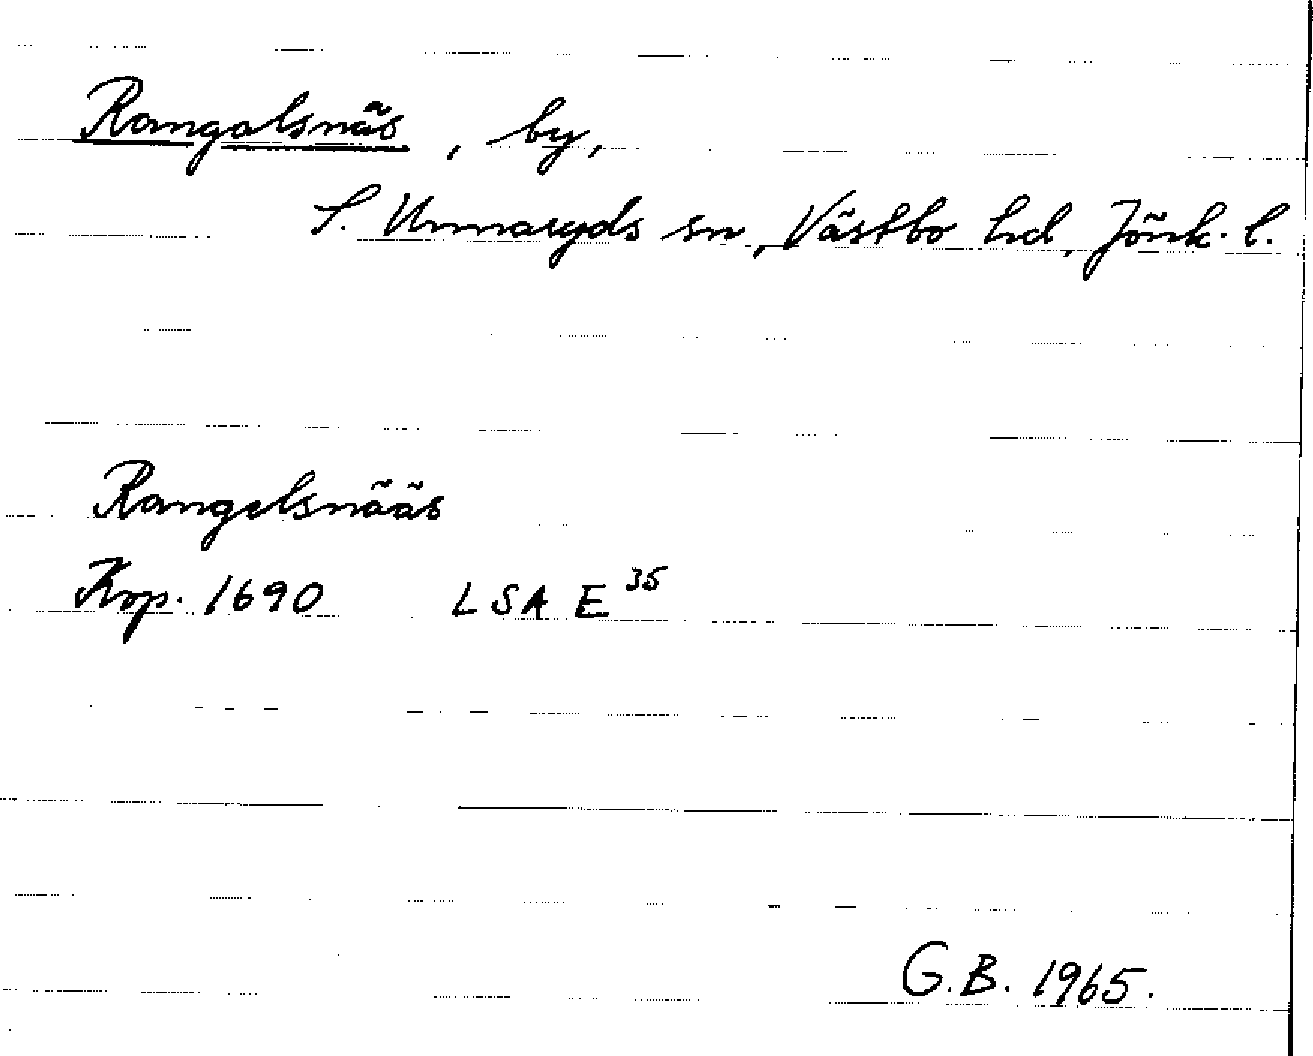 Rangalsnäs, by,
S. Unnaryds sn, Västbo hd, Jönk. l.
Rangelsnääs
Kop. 1690 LSA E 35
G.B. 1965.